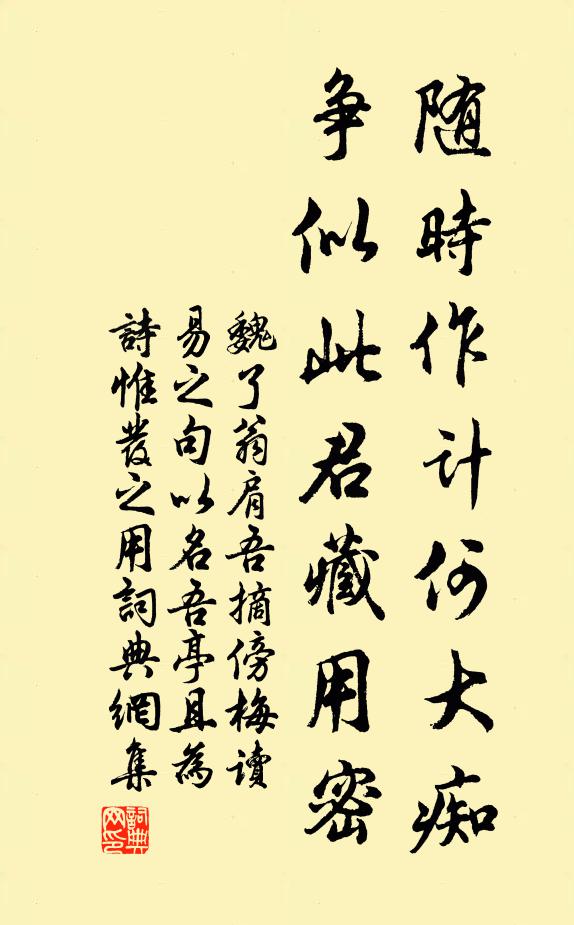 随時作計何大痴
争似此君藏用密
魏了翁肩吾摘傍梅讀
易之句以名吾亭且為
詩惟發之用詞典網集
詞典网印